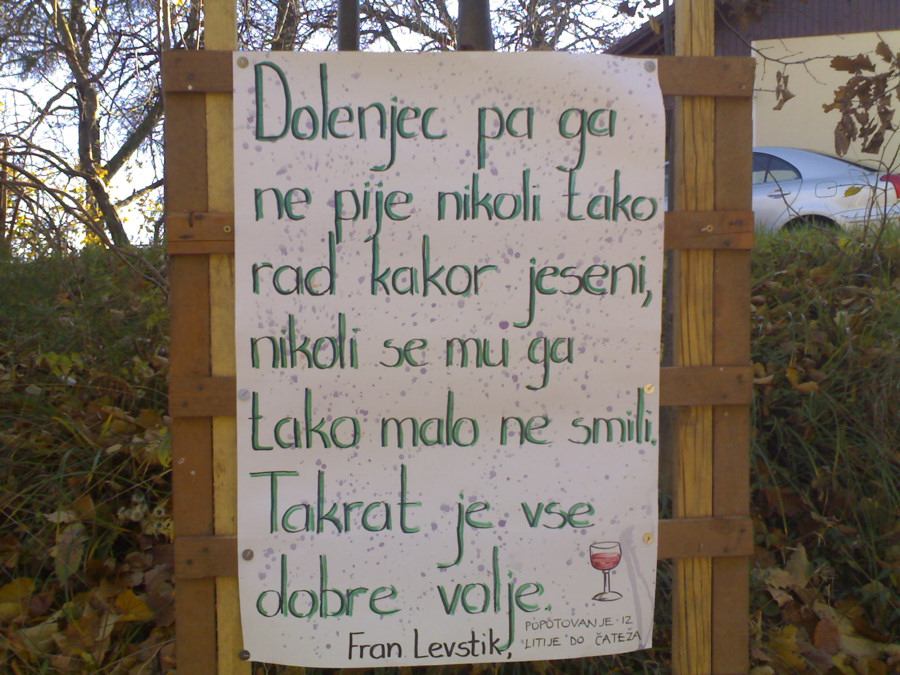 Dolenjec pa ga
ne pije nikoli tako
rad kakor jeseni,
nikoli se mu ga
tako malo ne smili.
Takrat je vse
dobre volje.
Fran Levstik,
POPOTOVANJE IZ
LITIJE DO ČATEŽA